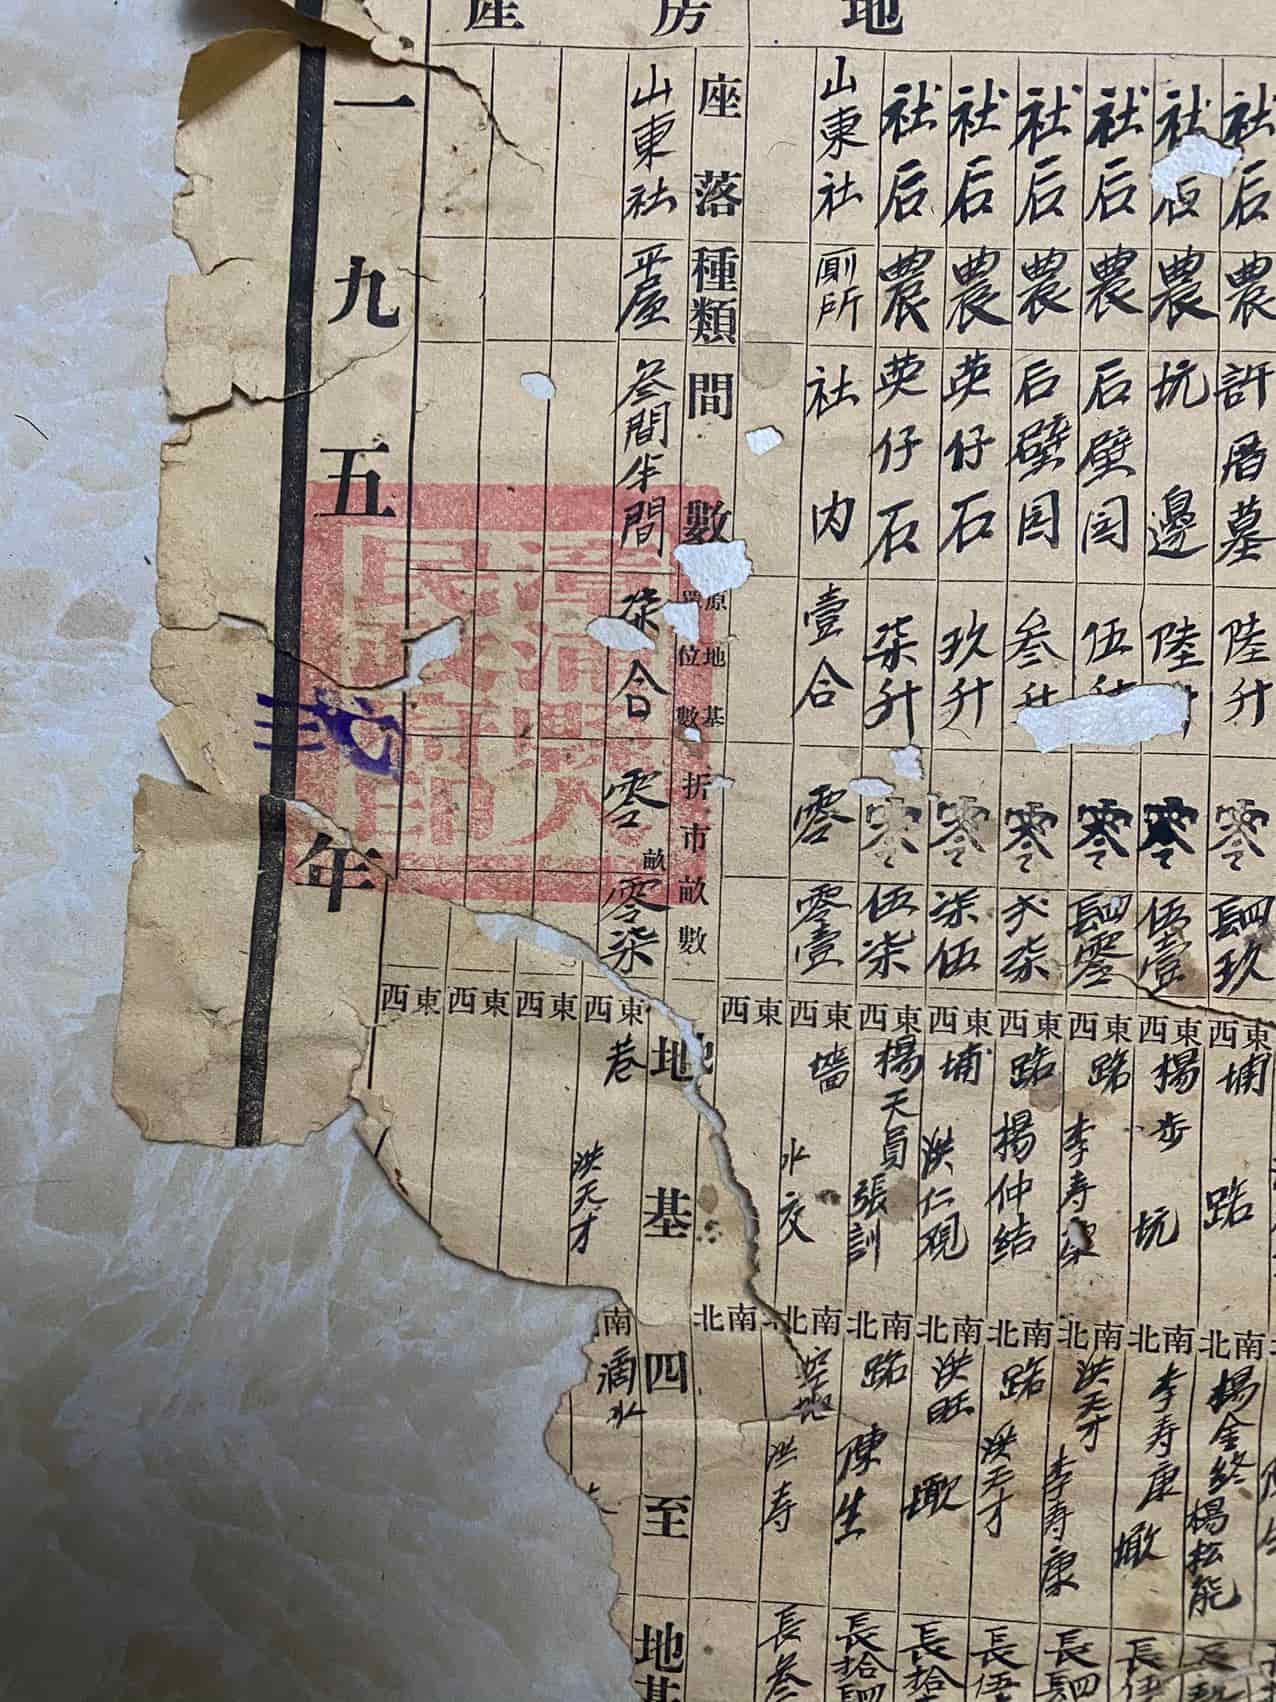 地
房
產
社后農許厝墓陸升零四玖
東埔西路
南楊金終北楊松能
社后農坑邊陸零伍壹
東楊步西坑
南李寿康北墘
長伍
社后農后壁园伍零四零
東路西李寿康
南洪天才北李寿康
長四
社后農后壁园叁升零弍柒
東路西楊仲結
南路北洪天才
長伍
社后農英仔石玖升零柒伍
東埔西洪仁硯
南洪旺北墘
長拾
社后農英仔石柒升零伍柒
東楊天員西張訓
南路北陳生
長拾四
山東社廁所社内壹合零零壹
東墻西水交
南空地北洪寿
長叁
東西
南北
座落種類間數
原地基
單位數
折市畝數
地基四至
地基
山東社平屋叁間半間柒合零畝零柒
東巷西洪天才
南滴水
東西
東西
東西
一九五弍年
漳浦縣人民政府印